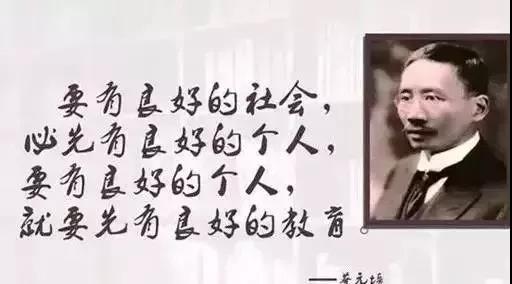 要有良好的社会，
必先有良好的个人，
要有良好的个人，
就要先有良好的教育
——蔡元培